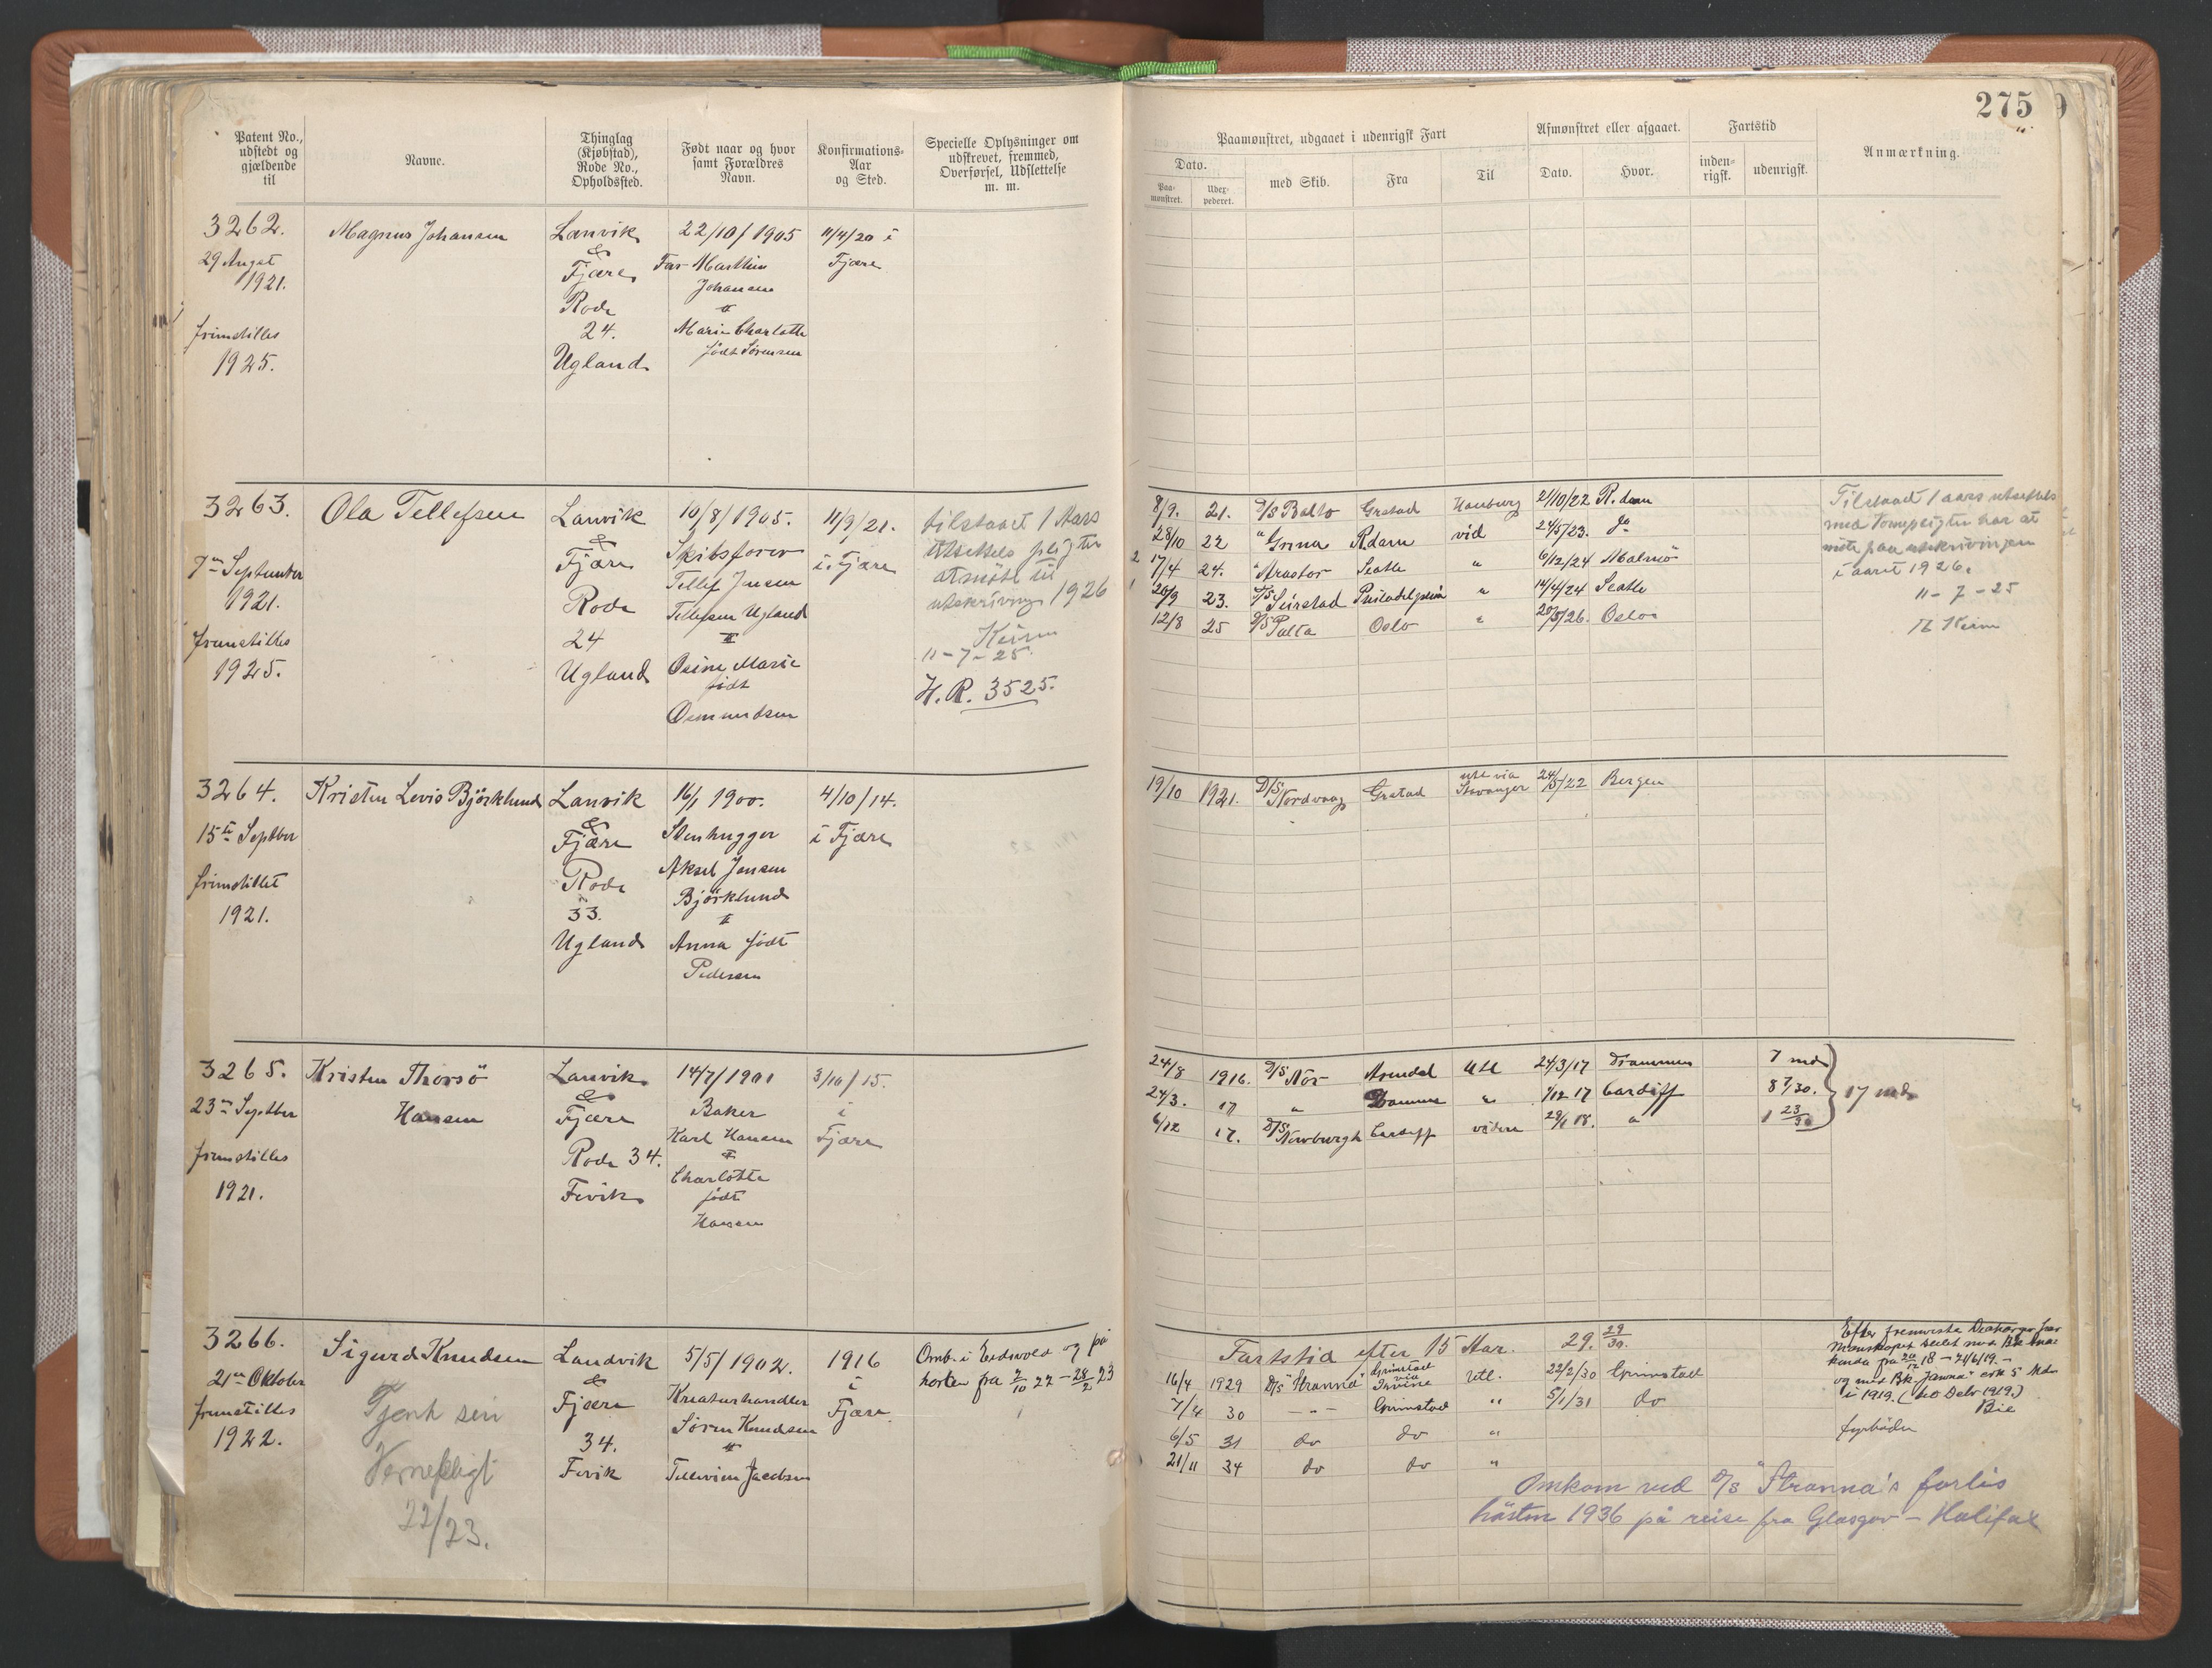 275
Patent No., udstedt og gjældende til
Navne.
Thinglag (Kjøbstad), Rode No., Opholdssted.
Født naar og hvor samt Forældres Navn.
Konfirmations-Aar og Sted.
Specielle Oplysninger om udskrevet, fremmed, Overførsel, Udslettelse m. m.
Paamønstret, udgaaet i udenrigsk Fart
Dato.
Paa-mønstret.
Uder-pederet.
med Skib.
Fra
Til
Afmønstret eller afgaaet.
Dato.
Hvor.
Fartstid
inden-rigsk.
udenrigsk.
Anmærkning.
3262.
29 August
1921.
frimstilles
1925.
Magnus Johansen
Lanvik
&
Fjære
Rode
24.
Ugland
22/10/1905
Far Marthin
Johansen
Marie Charlotte
født Sørensen
11/4/20 i
Fjære
3263.
7de September
1921.
fremstilles
1925.
Ola Tellefsen
Lanvik
&
Fjære
Rode
24
Ugland
10/8/1905.
Skibsfører
Tellef Jensen
Tellefsen Ugland
Osine Marie
født
Osmundsen
11/9/21.
i Fjære
tilstaaet 1 Aars
utsettels pligter
at møte til
utskrivning 1926
11-7-25
H. R. 3525.
8/9. 21. D/S Balto Grstad Hamburg 21/10/22 R.dam
28/10 22 " Grena R.dam vid 24/5/23. do
2 17/4 24. " Seatle " 6/12/24 Malmö
1 20/9 23. D/S Seirstad Philadelphia " 14/4/24 Seatle
12/8 25 D/S Palta Oslo " 20/5/26. Oslo
Tilstaaet 1 aars utsettels
med at
møte paa utskrivningen
i aaret 1926.
11-7-25
3264.
15de Septber
frimstillet
1921.
Kristen Levis Björklund
Lanvik
&
Fjære
Rode
33.
Ugland
16/1 1900.
Stenhugger
Aksel Jensen
Björklund
Anna født
Pedersen
4/10/14.
i Fjære
19/10 1921. D/S Nordvaag Grstad ute via Stavanger 24/5/22 Bergen
3265.
23de Septber
fremstilles
1921.
Kristen Thorsö
Hansen
Lanvik
&
Fjære
Rode 34.
Fevik
14/7/1901
Baker
Karl Hansen
Charlotte
født
Hansen
3/10/15.
i
Fjære
24/8 1916. D/S Nör Arendal Utl 24/3/17 Drammen 7 md
24/3. 17 " Drammen " 1/12 17 Cardiff 8 7/30.
6/12 17. D/S Newburgh Cardiff videre 29/1 18. " 1 23/30
17 md
3266.
21de Oktober
fremstilles
1922.
Sigurd Knudsen
Tjent sin
Vernepligt
22/23.
Landvik
&
Fjære
34.
Fevik
5/5/1902.
Kreaturhandler
Søren Knudsen
Tellevine Jacobsen
1916
i
Fjære
Omb. i Eidsvold og på
horten fra 2/10 22 – 28/2 23
Fartstid efter 15 Aar. 29. 29/30.
16/4 1929 D/S "Stranna" Grimstad via Irvine Utl. 22/2/30 Grimstad
7/4 30 – " – Grimstad " 5/1/31 do
6/5 31 do do "
21/11 34 do do "
Omkom ved D/S "Stranna's forlis
hösten 1936 på reise fra Glasgow – Halifax
Efter fremviste
seilet med Bk
fra 20/12 18 – 21/6/19. –
og med Bk. "Jawna" 5 Mdr
i 1919. (
Bie
fyrbøder